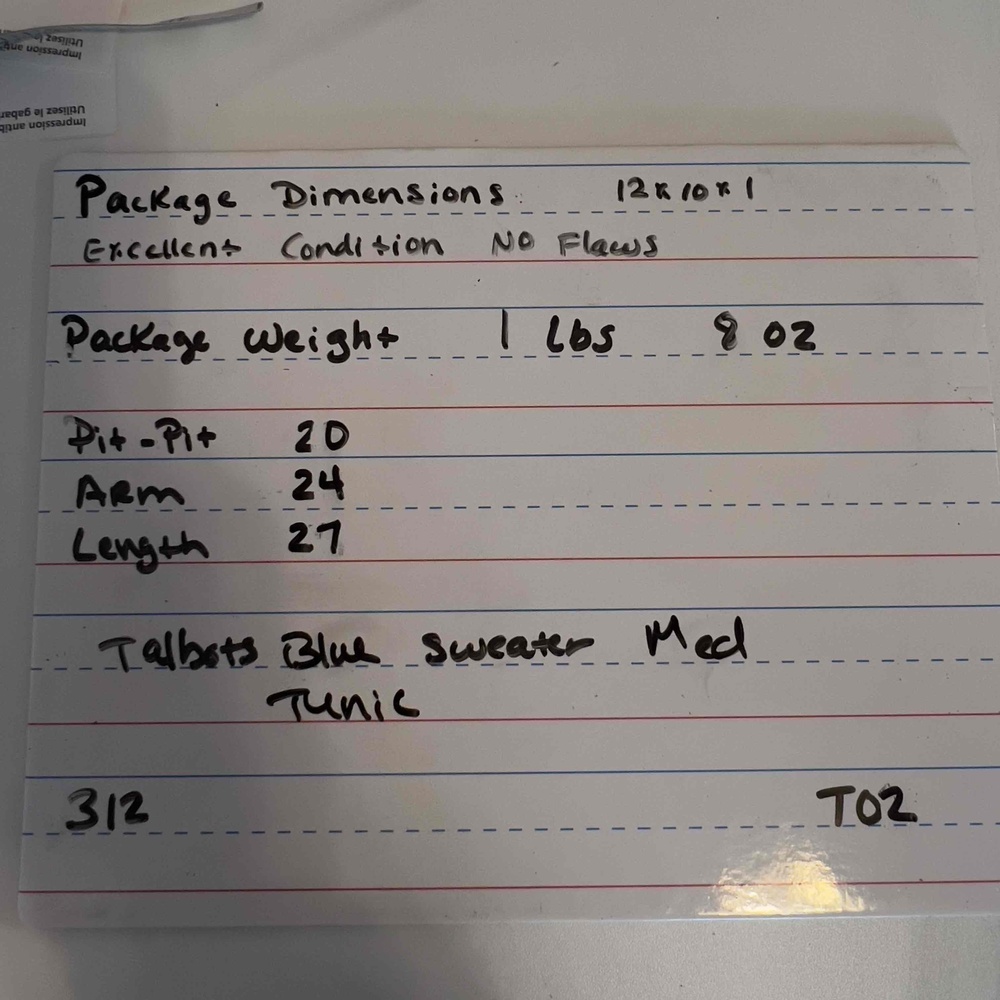 Utilisez le
Impression anti
Utilisez le gabar
Impression antib
Package Dimensions: 12 x 10 x 1
Excellent Condition NO Flaws
Package Weight 1 Lbs 8 OZ
Pit-Pit 20
ARM 24
Length 27
Talbots Blue Sweater Med
Tunic
312 T02